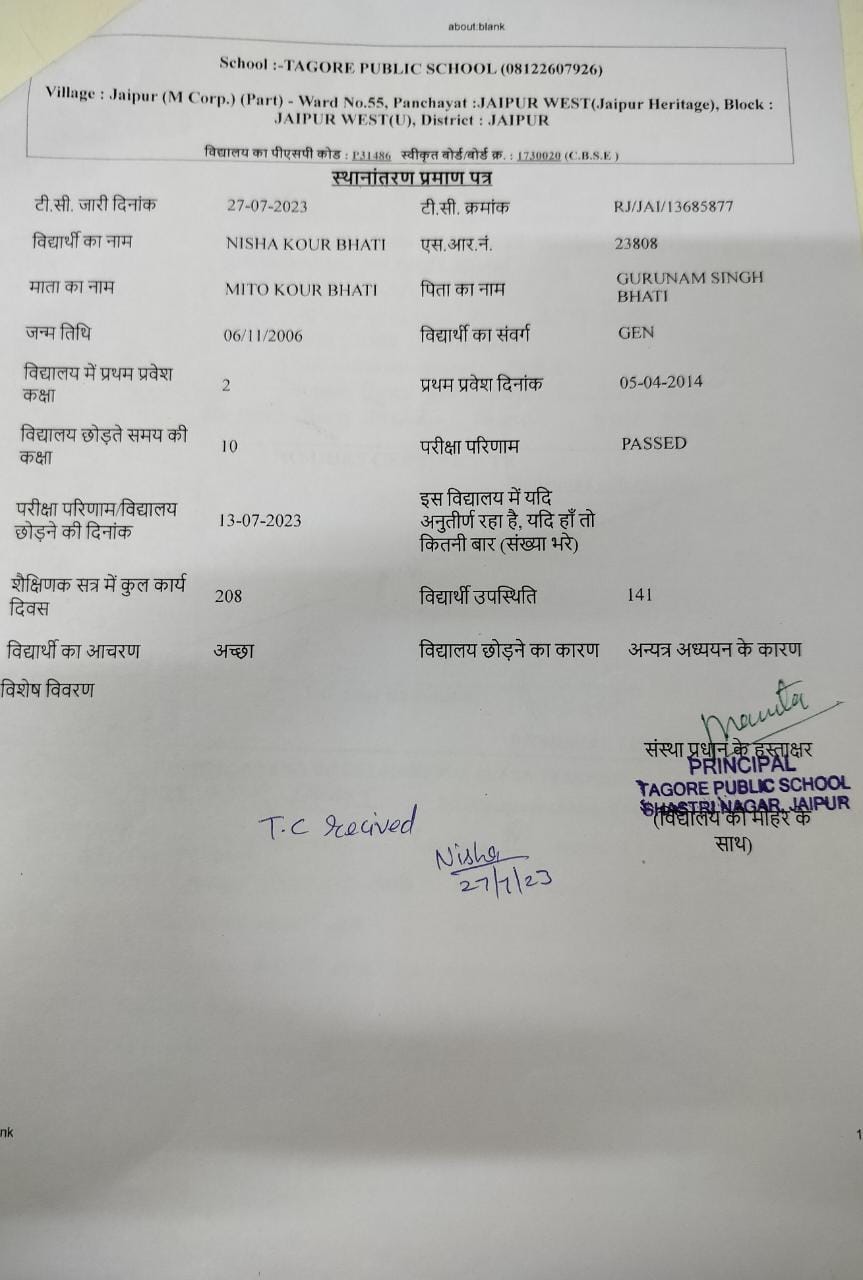 about:blank
School :-TAGORE PUBLIC SCHOOL (08122607926)
Village : Jaipur (M Corp.) (Part) - Ward No.55, Panchayat :JAIPUR WEST(Jaipur Heritage), Block :
JAIPUR WEST(U), District : JAIPUR
विद्यालय का पीएसपी कोड : P31486 स्वीकृत बोर्ड/बोर्ड क्र. : 1730020 (C.B.S.E )
स्थानांतरण प्रमाण पत्र
टी.सी. जारी दिनांक 27-07-2023 टी.सी. क्रमांक RJ/JAI/13685877
विद्यार्थी का नाम NISHA KOUR BHATI एस.आर.नं. 23808
माता का नाम MITO KOUR BHATI पिता का नाम GURUNAM SINGH
BHATI
जन्म तिथि 06/11/2006 विद्यार्थी का संवर्ग GEN
विद्यालय में प्रथम प्रवेश
कक्षा 2 प्रथम प्रवेश दिनांक 05-04-2014
विद्यालय छोड़ते समय की
कक्षा 10 परीक्षा परिणाम PASSED
परीक्षा परिणाम/विद्यालय
छोड़ने की दिनांक 13-07-2023 इस विद्यालय में यदि
अनुतीर्ण रहा है, यदि हाँ तो
कितनी बार (संख्या भरे)
शैक्षिणक सत्र में कुल कार्य
दिवस 208 विद्यार्थी उपस्थिति 141
विद्यार्थी का आचरण अच्छा विद्यालय छोड़ने का कारण अन्यत्र अध्ययन के कारण
विशेष विवरण
Mamta
संस्था प्रधान के हस्ताक्षर
PRINCIPAL
TAGORE PUBLIC SCHOOL
SHASTRI NAGAR, JAIPUR
(विद्यालय की मोहर के
साथ)
T.C recived
Nisha
27/7/23
nk
1